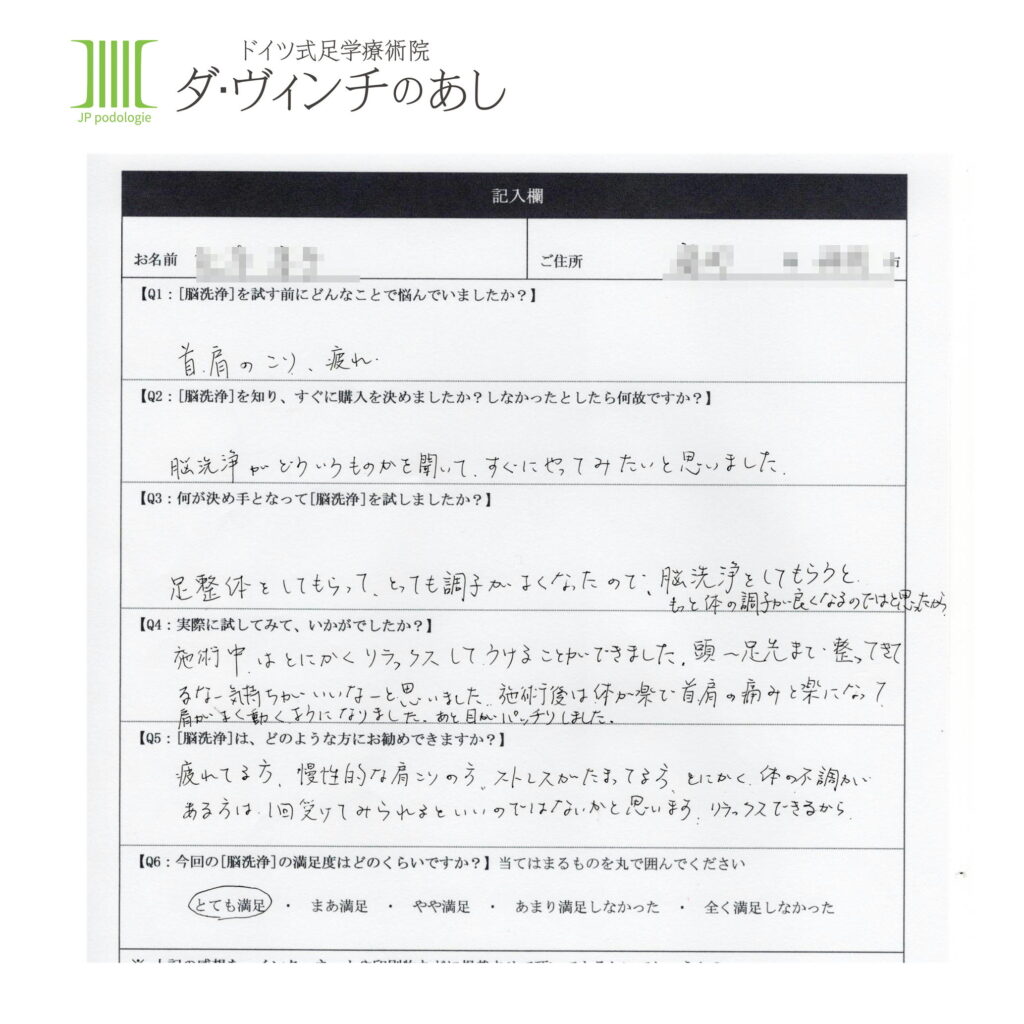 ドイツ式足学療術院
ダ・ヴィンチのあし
JP podologie
記入欄
お名前
ご住所 市
【Q1：[脳洗浄]を試す前にどんなことで悩んでいましたか？】
首、肩のこり、疲れ
【Q2：[脳洗浄]を知り、すぐに購入を決めましたか？しなかったとしたら何故ですか？】
脳洗浄がどういうものかを聞いて、すぐにやってみたいと思いました。
【Q3：何が決め手となって[脳洗浄]を試しましたか？】
足整体をしてもらって、とっても調子がよくなったので、脳洗浄をしてもらうと、
もっと体の調子が良くなるのではと思ったから
【Q4：実際に試してみて、いかがでしたか？】
施術中はとにかくリラックスしてうけることができました。頭〜足先まで整ってきて
るなー気持ちがいいなーと思いました。施術後は体が楽で首肩の痛みも楽になって
肩がよく動くようになりました。あと目がパッチリしました。
【Q5：[脳洗浄]は、どのような方にお勧めできますか？】
疲れてる方、慢性的な肩こりの方、ストレスがたまってる方、とにかく、体の不調が
ある方は、1回受けてみられるといいのではないかと思います。リラックスできるから。
【Q6：今回の[脳洗浄]の満足度はどのくらいですか？】当てはまるものを丸で囲んでください
とても満足 ・ まあ満足 ・ やや満足 ・ あまり満足しなかった ・ 全く満足しなかった